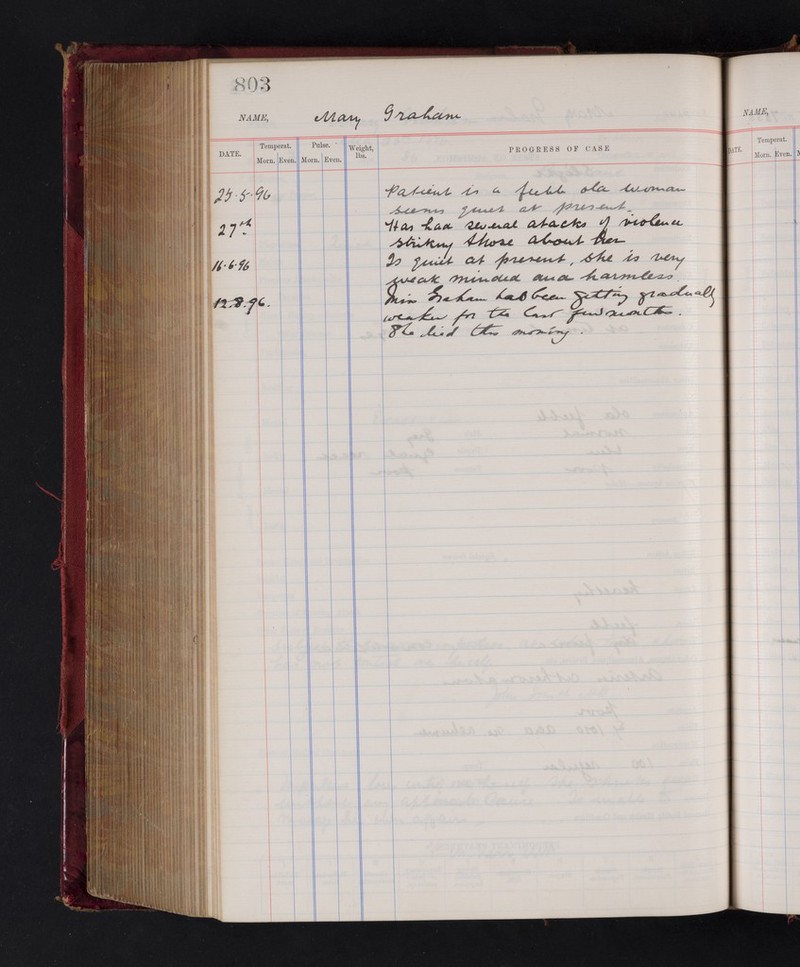 803
NAME, Mary Graham
DATE. Temperat. Morn. Even. Pulse. Morn. Even. Weight, lbs. PROGRESS OF CASE
25-5-96 Patient is a feeble old woman
seems quiet at present.
27th Has had several attacks of violence
striking those about her
16-6-96 Is quiet at present, she is very
weak minded and harmless
12.8.96. Miss Graham has been getting gradually
weaker for the last few months.
She died this morning.
NAME,
DATE. Temperat. Morn. Even.